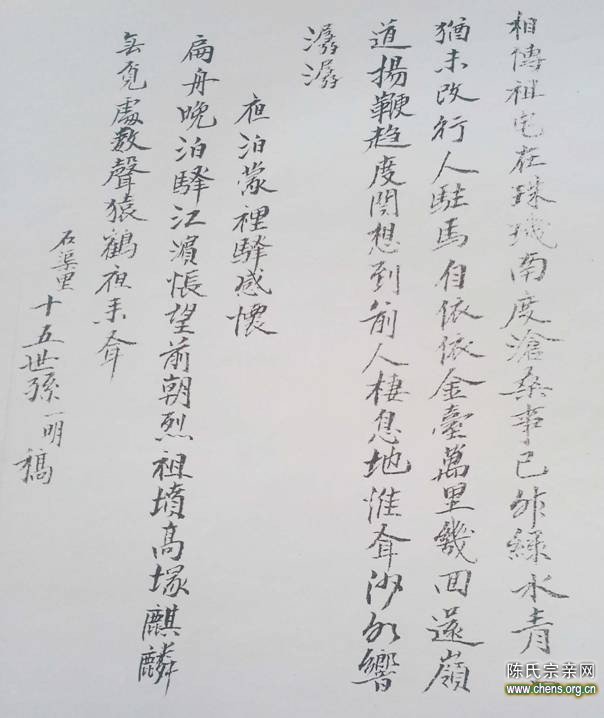 相傳祖宅在珠璣南度滄桑事已非綠水青
猶未改行人駐馬自依依金臺萬里幾回還嶺
道揚鞭趋度関想到前人棲息地惟聞沙水響
潺潺
夜泊蒙裡驛感懷
扁舟晚泊驛江濱悵望前朝烈祖墳高塚麒麟
無覓處數聲猿鶴夜来聞
石渠里十五世孫一明稿
陈氏宗亲网
www.chens.org.cn